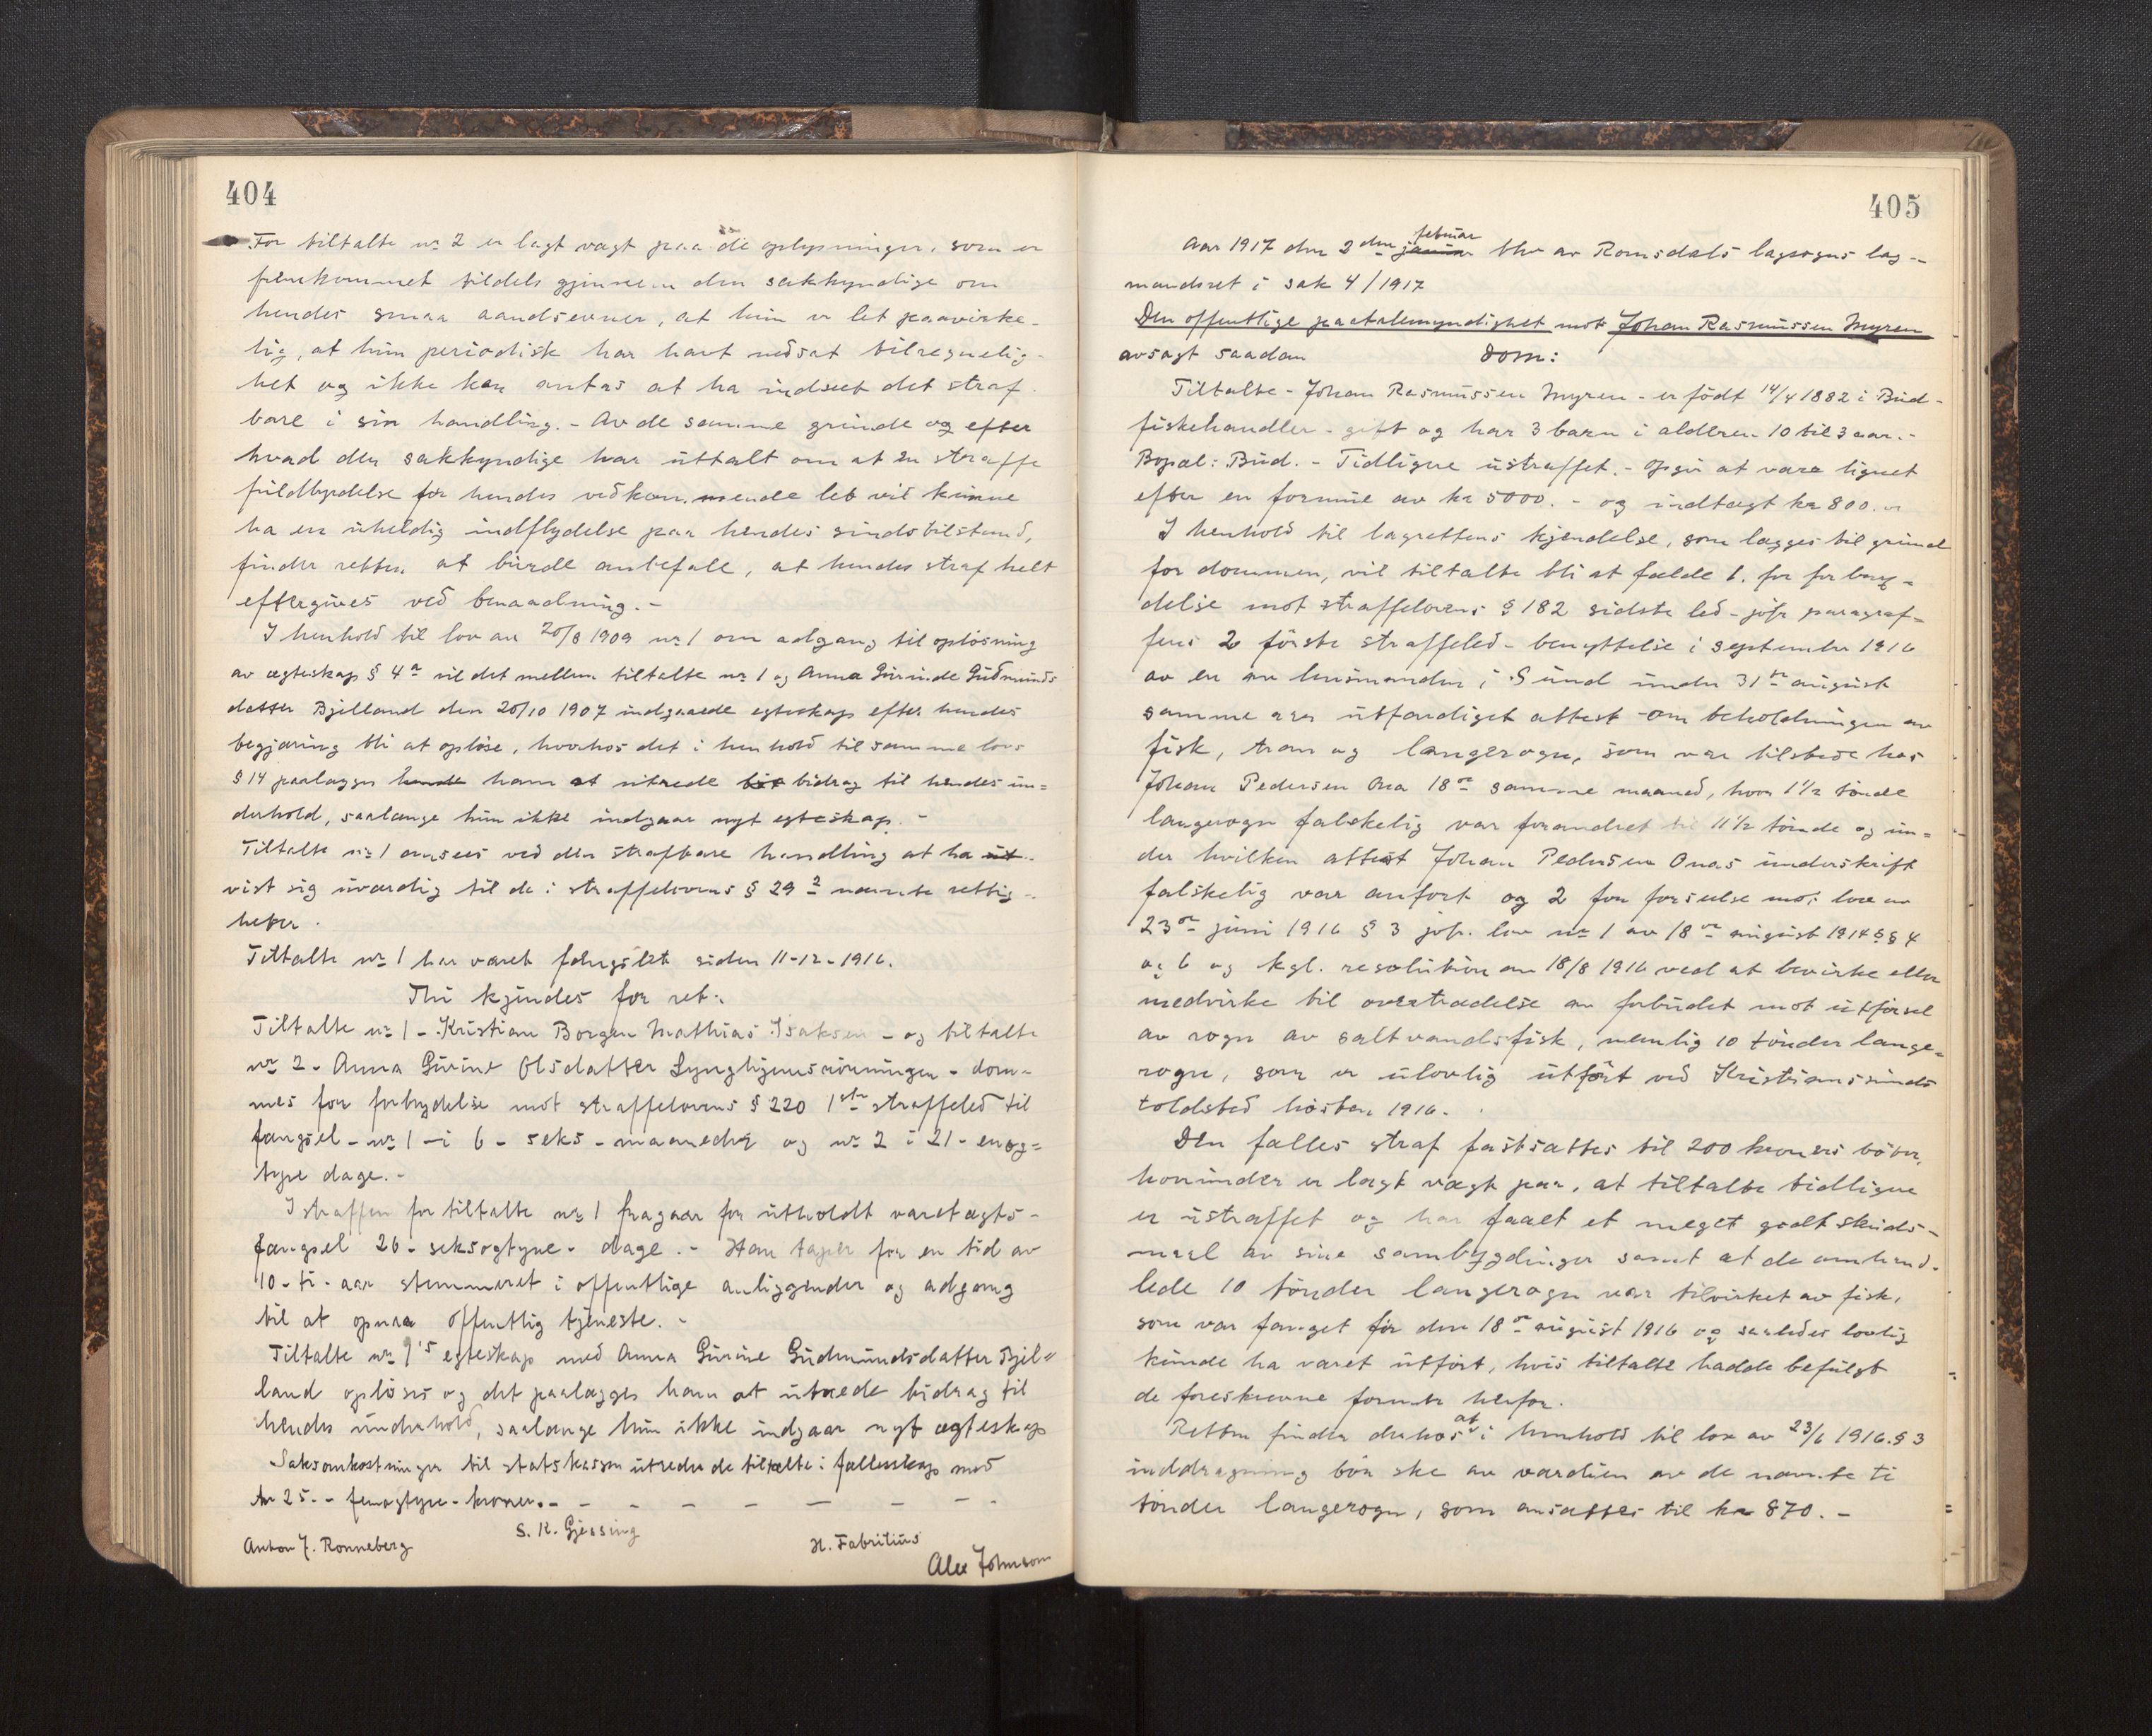 404
For tiltalte nr 2 er lagt vægt paa de oplysninger, som er
fremkommet tildels gjennem den sakkyndige om
hendes smaa aandsevner, at hun er let paavirke-
lig, at hun periodisk har havt nedsat tilregnelig-
het og ikke kan antas at ha indseet det straf-
bare i sin handling. - Av de samme grunde og efter
hvad den sakkyndige har uttalt om at en straffe
fuldbyrdelse for hendes vedkommende let vil kunne
ha en uheldig indflydelse paa hendes sindstilstand,
finder retten at burde anbefale, at hendes straf helt
eftergives ved benaadning. -
I henhold til lov av 20/8 1909 nr 1 om adgang til opløsning
av ægteskap § 4a vil det mellem tiltalte nr 1 og Anna Gurine Gudmunds
datter Bjelland den 20/10 1907 indgaaede egteskap efter hendes
begjæring bli at opløse, hvorhos det i henhold til samme lovs
§ 14 paalægges hende ham at utrede bidrag til hendes un=
derhold, saalænge hun ikke indgaar nyt egteskap. -
Tiltalte nr 1 ansees ved den strafbare handling at ha ut-
vist sig uværdig til de i straffelovens § 29 2 nævnte rettig-
heter.
Tiltalte nr 1 har været fængslet siden 11-12-1916.
Thi kjendes for ret:
Tiltalte nr 1 - Kristian Borgen Mathias Isaksen - og tiltalte
nr 2 - Anna Gurine Olsdatter - døm-
mes for forbrydelse mot straffelovens § 220 1ste straffeled til
fængsel - nr 1 - i 6 - seks - maaneder og nr 2 i 21 - enog=
tyve dage. -
I straffen for tiltalte nr 1 fragaar for utholdt varetægts-
fængsel 26 - seksogtyve - dage. - Han taper for en tid av
10 - ti - aar stemmeret i offentlige anliggender og adgang
til at opnaa offentlig tjeneste. -
Tiltalte nr 1's egteskap med Anna Gurine Gudmundsdatter Bjel=
land opløses og det paalægges ham at utrede bidrag til
hendes underhold, saalænge hun ikke indgaar nyt ægteskap
Saksomkostninger til statskassen utreder de tiltalte i fællesskap med
kr 25. - femogtyve - kroner. - - - - - - - -
Anton J. Rønneberg S. K. Gjessing H. Fabritius
Alex Johnson
405
Aar 1917 den 2den januar februar blev av Romsdals lagsogns lag-
mandsret i sak 4/1917
Den offentlige paatalemyndighet mot Johan Rasmussen Myren
avsagt saadan Dom:
Tiltalte - Johan Rasmussen Myren - er født 14/4 1882 i Bud -
fiskehandler - gift og har 3 barn i alderen 10 til 3 aar. -
Bopæl: Bud. - Tidligere ustraffet. - Opgir at være lignet
efter en formue av kr 5000. - og indtægt kr 800. -
I henhold til lagrettens kjendelse, som lægges til grund
for dommen, vil tiltalte bli at fælde 1. for forbry=
delse mot straffelovens § 182 sidste led - jvfr paragraf=
fens 2 første straffeled - benyttelse i september 1916
av en av lensmanden i Sund under 31te august
samme aar utfærdiget attest om beholdningen av
fisk, tran og langerogn, som var tilstede hos
Johan Pedersen Ona 18de samme maaned, hvor 1½ tønde
langerogn falskelig var forandret til 11½ tønde og un=
der hvilken attest Johan Pedersen Onas underskrift
falskelig var anført og 2 for forseelse mot lov av
23de juni 1916 § 3 jvfr. lov nr 1 av 18de august 1914 §§ 4
og 6 og kgl. resolution av 18/8 1916 ved at bevirke eller
medvirke til overtrædelse av forbudet mot utførsel
av rogn av saltvandsfisk, nemlig 10 tønder lange=
rogn, som er ulovlig utført ved Kristianssunds
toldsted høsten 1916.
Den fælles straf fastsættes til 200 kroners bøter,
hvorunder er lagt vægt paa, at tiltalte tidligere
er ustraffet og har faaet et meget godt skuds-
maal av sine sambygdinger samt at de omhand-
lede 10 tønder langerogn var tilvirket av fisk,
som var fanget før den 18de august 1916 og saaledes lovlig
kunde ha været utført, hvis tiltalte hadde befulgt
de foreskrevne former herfor.
Retten finder derhos at i henhold til lov av 23/6 1916 § 3
inddragning bør ske av værdien av de nævnte ti
tønder langerogn, som ansættes til kr 870. -